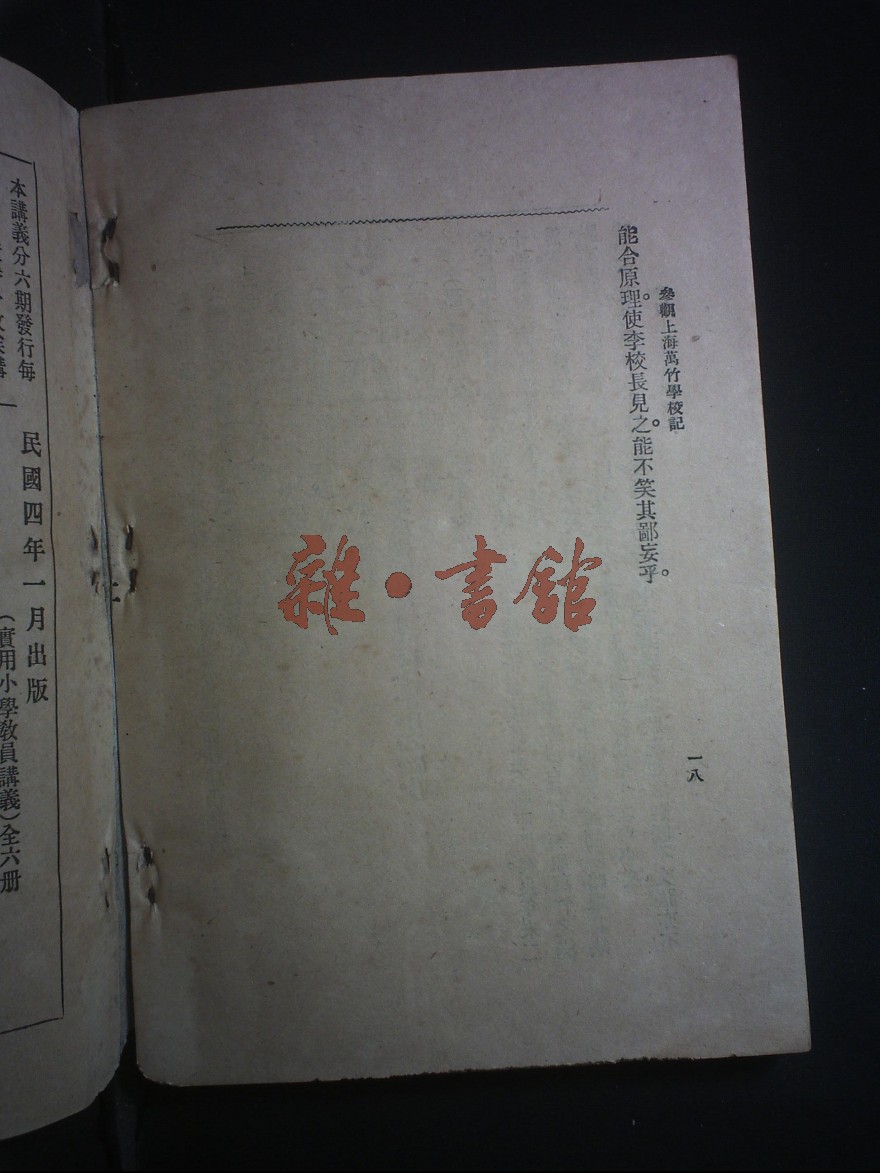 參觀上海萬竹學校記
能合原理。使李校長見之。能不笑其鄙妄乎。
一八
雜·書舘
本講義分六期發行每
民國四年一月出版
(實用小學敎員講義)全六册